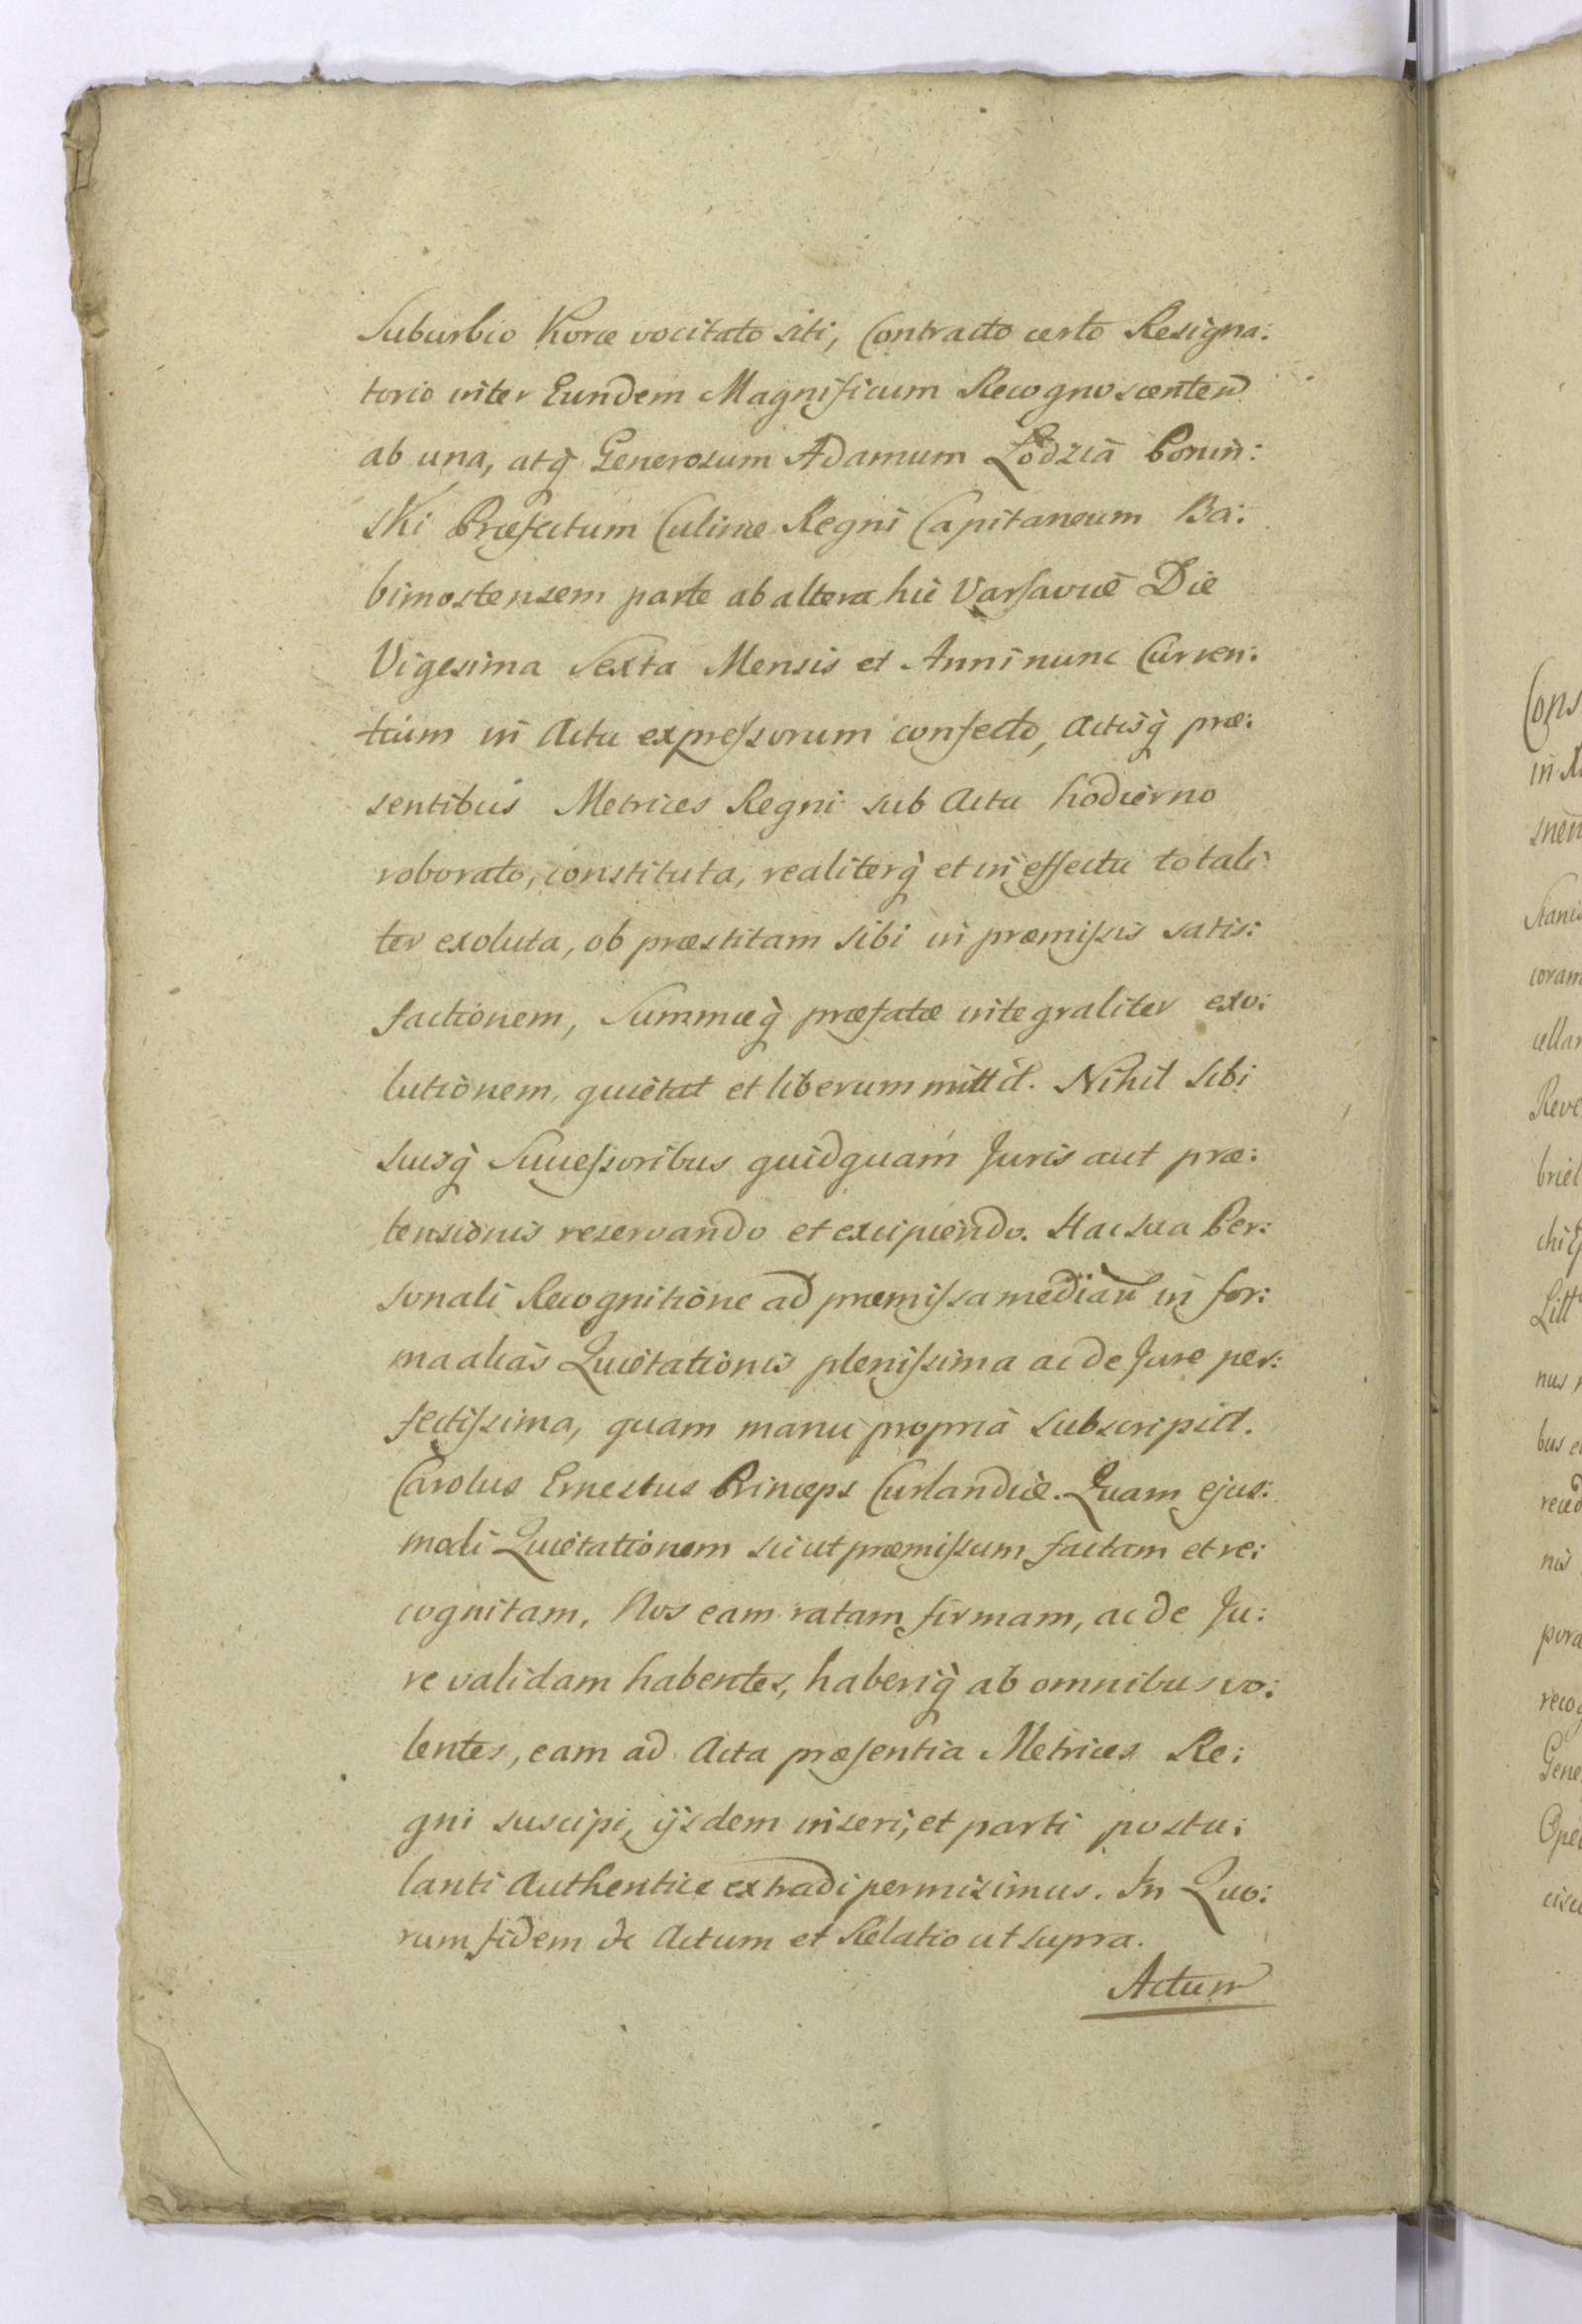 Suburbio Koræ vocitato siti, Contracto certo Resigna:
torio inter Eundem Magnificum Recognoscentem
ab una, atq̀ Generosum Adamum Łodzia Ponin:
ski Præfectum Culinæ Regni Capitaneum Ba:
bimostensem parte ab altera hic Varsaviæ Die
Vigesima Sexta Mensis et Anni nunc Curren:
tium in Actu expressorum confecto, Actisq̀ præ:
sentibus Metrices Regni sub Actu hodierno
roborato, constituta, realiterq̀ et in effectu totali
ter exoluta, ob præstitam sibi in præmissis satis:
factionem, Summæq̀ præfatæ integraliter exo:
lutionem, quietat et liberum mittit. Nihil sibi
suisq̀ Successoribus quidquam Juris aut præ:
tensionis reservando et excipiendo. Hac sua Per:
sonali Recognitione ad præmissa median̄ in for:
ma alias Quietationis plenissima ac de Jure per:
fectissima, quam manu propria subscripsit.
Carolus Ernestus Princeps Curlandiæ. Quam ejus:
modi Quietationem sicut præmissum factam et re:
cognitam, Nos eam ratam firmam, ac de Ju:
re validam habentes, haberiq̀ ab omnibus vo:
lentes, eam ad Acta præsentia Metrices Re:
gni suscipi, ijsdem inseri, et parti postu:
lanti Authentice extradi permisimus. In Quo:
rum fidem &c Actum et Relatio ut supra.
Actum
Cons
Stanis
coram
cellar
Reve
briel
Litt
nus
bus
recog
Gene